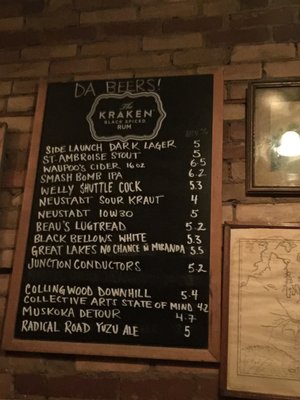 DA BEERS!
The
KRAKEN
BLACK SPICED
RUM
SIDE LAUNCH DARK LAGER 5
ST. AMBROISE STOUT 5
WAUPOO'S CIDER 16oz 6.5
SMASH BOMB IPA 6.2
WELLY SHUTTLE COCK 5.3
NEUSTADT SOUR KRAUT 4
NEUSTADT 10W30 5
BEAU'S LUGTREAD 5.2
BLACK BELLOWS WHITE 5.3
GREAT LAKES NO CHANCE W MIRANDA 5.5
JUNCTION CONDUCTORS 5.2
COLLINGWOOD DOWNHILL 5.4
COLLECTIVE ARTS STATE OF MIND 4.2
MUSKOKA DETOUR 4.7
RADICAL ROAD YUZU ALE 5